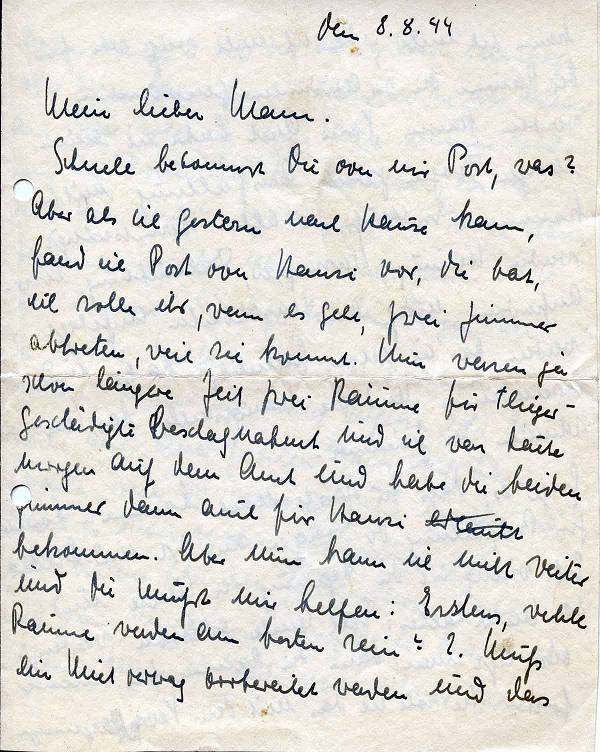 den 8.8.44
Mein lieber Mann.
Schnell bekommst Du von mir Post, was?
Aber als ich gestern nach Hause kam,
fand ich Post von Hansi vor, die bat,
ich solle ihr, wenn es geht, zwei Zimmer
abtreten, weil sie kommt. Nun waren ja
schon längere Zeit zwei Räume für Flieger-
geschädigte beschlagnahmt und ich war heute
morgen auf dem Amt und habe die beiden
Zimmer dann auch für Hansi
bekommen. Aber nun kann ich nicht weiter
und Du mußt mir helfen: Erstens, welche
Räume werden am besten sein? 2. Muß
ein Mietvertrag vorbereitet werden und das